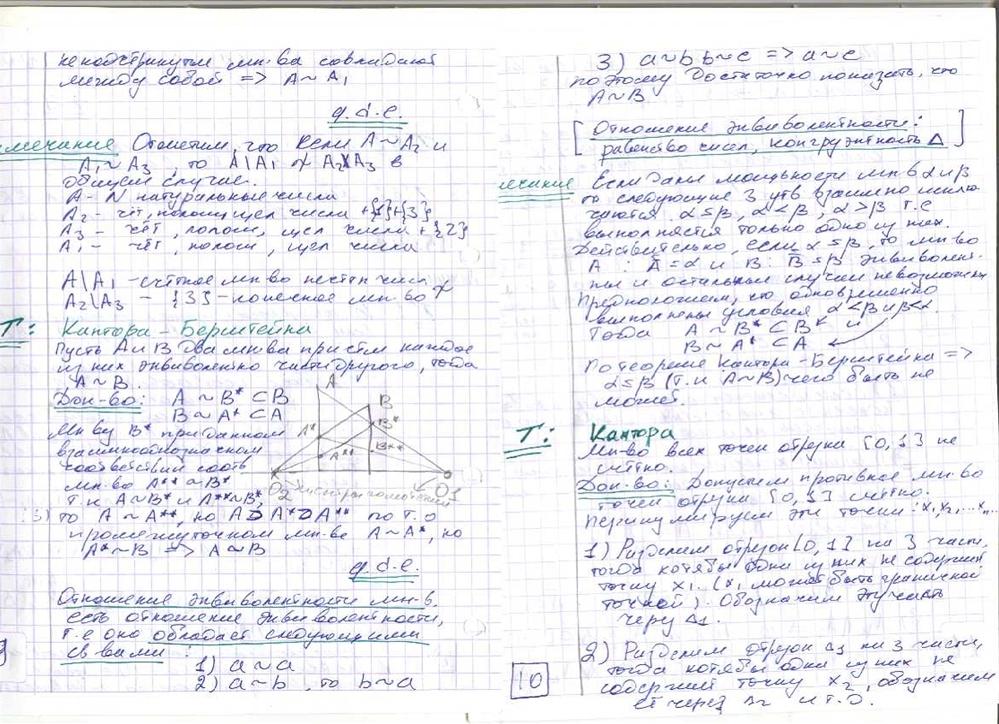 неподчёркнутые мн-ва совпадают
между собой => A ~ A₁
q.d.e.
мечание Отметим, что если A ~ A₂ и
A₁ ~ A₃, то A\A₁ ≁ A₂\A₃ в
общем случае.
A - N натуральные числа
A₂ - чёт, полож, цел числа + {1}+{3}
A₃ - чёт, полож, цел числа + {2}
A₁ - чёт, полож, цел числа
A\A₁ - счётное мн-во нечетн чисел
A₂\A₃ - {3} - конечное мн-во ≁
Т: Кантора - Бернштейна
Пусть A и B два мн-ва при этом каждое
из них эквивалентно части другого, тогда
A ~ B.
Док-во: A ~ B* ⊂ B
B ~ A* ⊂ A
Мн-ву B* при данном
взаимнооднозначном
соответствии соотв
мн-во A** ~ B*
т.к A ~ B* и A** ~ B*,
3) то A ~ A**, но A ⊃ A* ⊃ A** по т. о
промежуточном мн-ве A ~ A*, но
A* ~ B => A ~ B
A
B
A*
B*
A**
B**
O₂
O1
q.d.e.
Отношение эквивалентности мн-в.
есть отношение эквивалентности,
т.е оно обладает следующими
св-вами:
1) a ~ a
2) a ~ b, то b ~ a
9
3) a ~ b b ~ c => a ~ c
поэтому достаточно показать, что
A ~ B
[Отношение эквивалентности:
равенство чисел, конгруэнтность Δ]
мечание Если даны мощности мн-в α и β
то следующие 3 утв взаимно исклю
чаются α = β, α < β, α > β т.е
выполняется только одно из них.
Действительно, если α = β, то мн-во
A : A̿ = α и B : B̿ = β эквивалент-
ны и остальные случаи невозможны
Предположим, что одновременно
выполнены условия α < β и β < α.
Тогда A ~ B* ⊂ B и
B ~ A* ⊂ A
По теореме Кантора - Бернштейна =>
α = β (т.к A ~ B) чего быть не
может.
Т: Кантора
Мн-во всех точек отрезка [0, 1] не
счётно.
Док-во: Допустим противное мн-во
точек отрезка [0, 1] счётно.
Перенумеруем эти точки: x₁, x₂, ... xₙ...
1) Разделим отрезок [0, 1] на 3 части,
тогда хотябы одна из них не содержит
точку x₁. (x₁ может быть граничной
точкой). Обозначим эту часть
через Δ₁.
2) Разделим отрезок Δ₁ на 3 части,
тогда хотябы одна из них не
содержит точку x₂, обозначим
её через Δ₂ и т.д.
10